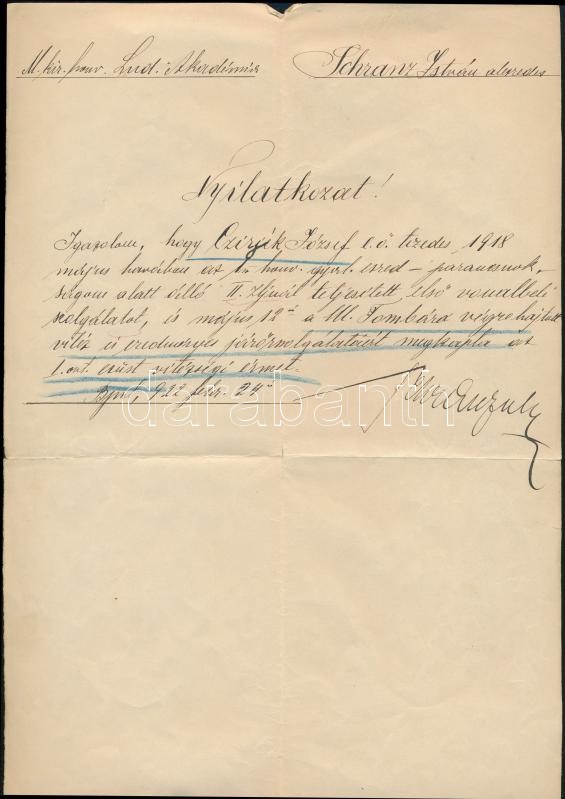 M. kir. honv. Lud. Akadémia
Schranz István alezredes
Nyilatkozat!
Igazolom, hogy Czirják József t.ő. ezredes, 1918
május havában az honv. gyal. ezred – parancsnok-
ságom alatt álló II. zljnál teljesített első vonalbeli
szolgálatot, és május 12-n a M. Tombára végrehajtott
vitéz és eredményes járőrszolgálatáért megkapta az
I. oszt. ezüst vitézségi érmet.
Bpest, 922 febr. 24-n
darabanth.com